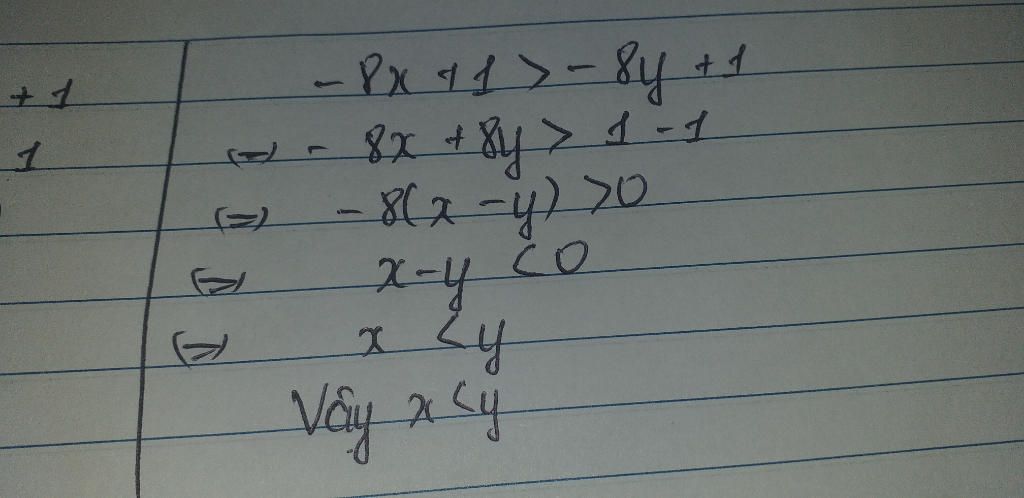 + 1
1
- 8x + 1 > - 8y + 1
(=) - 8x + 8y > 1 - 1
(=) - 8(x - y) > 0
(=) x - y < 0
(=) x < y
Vây x < y